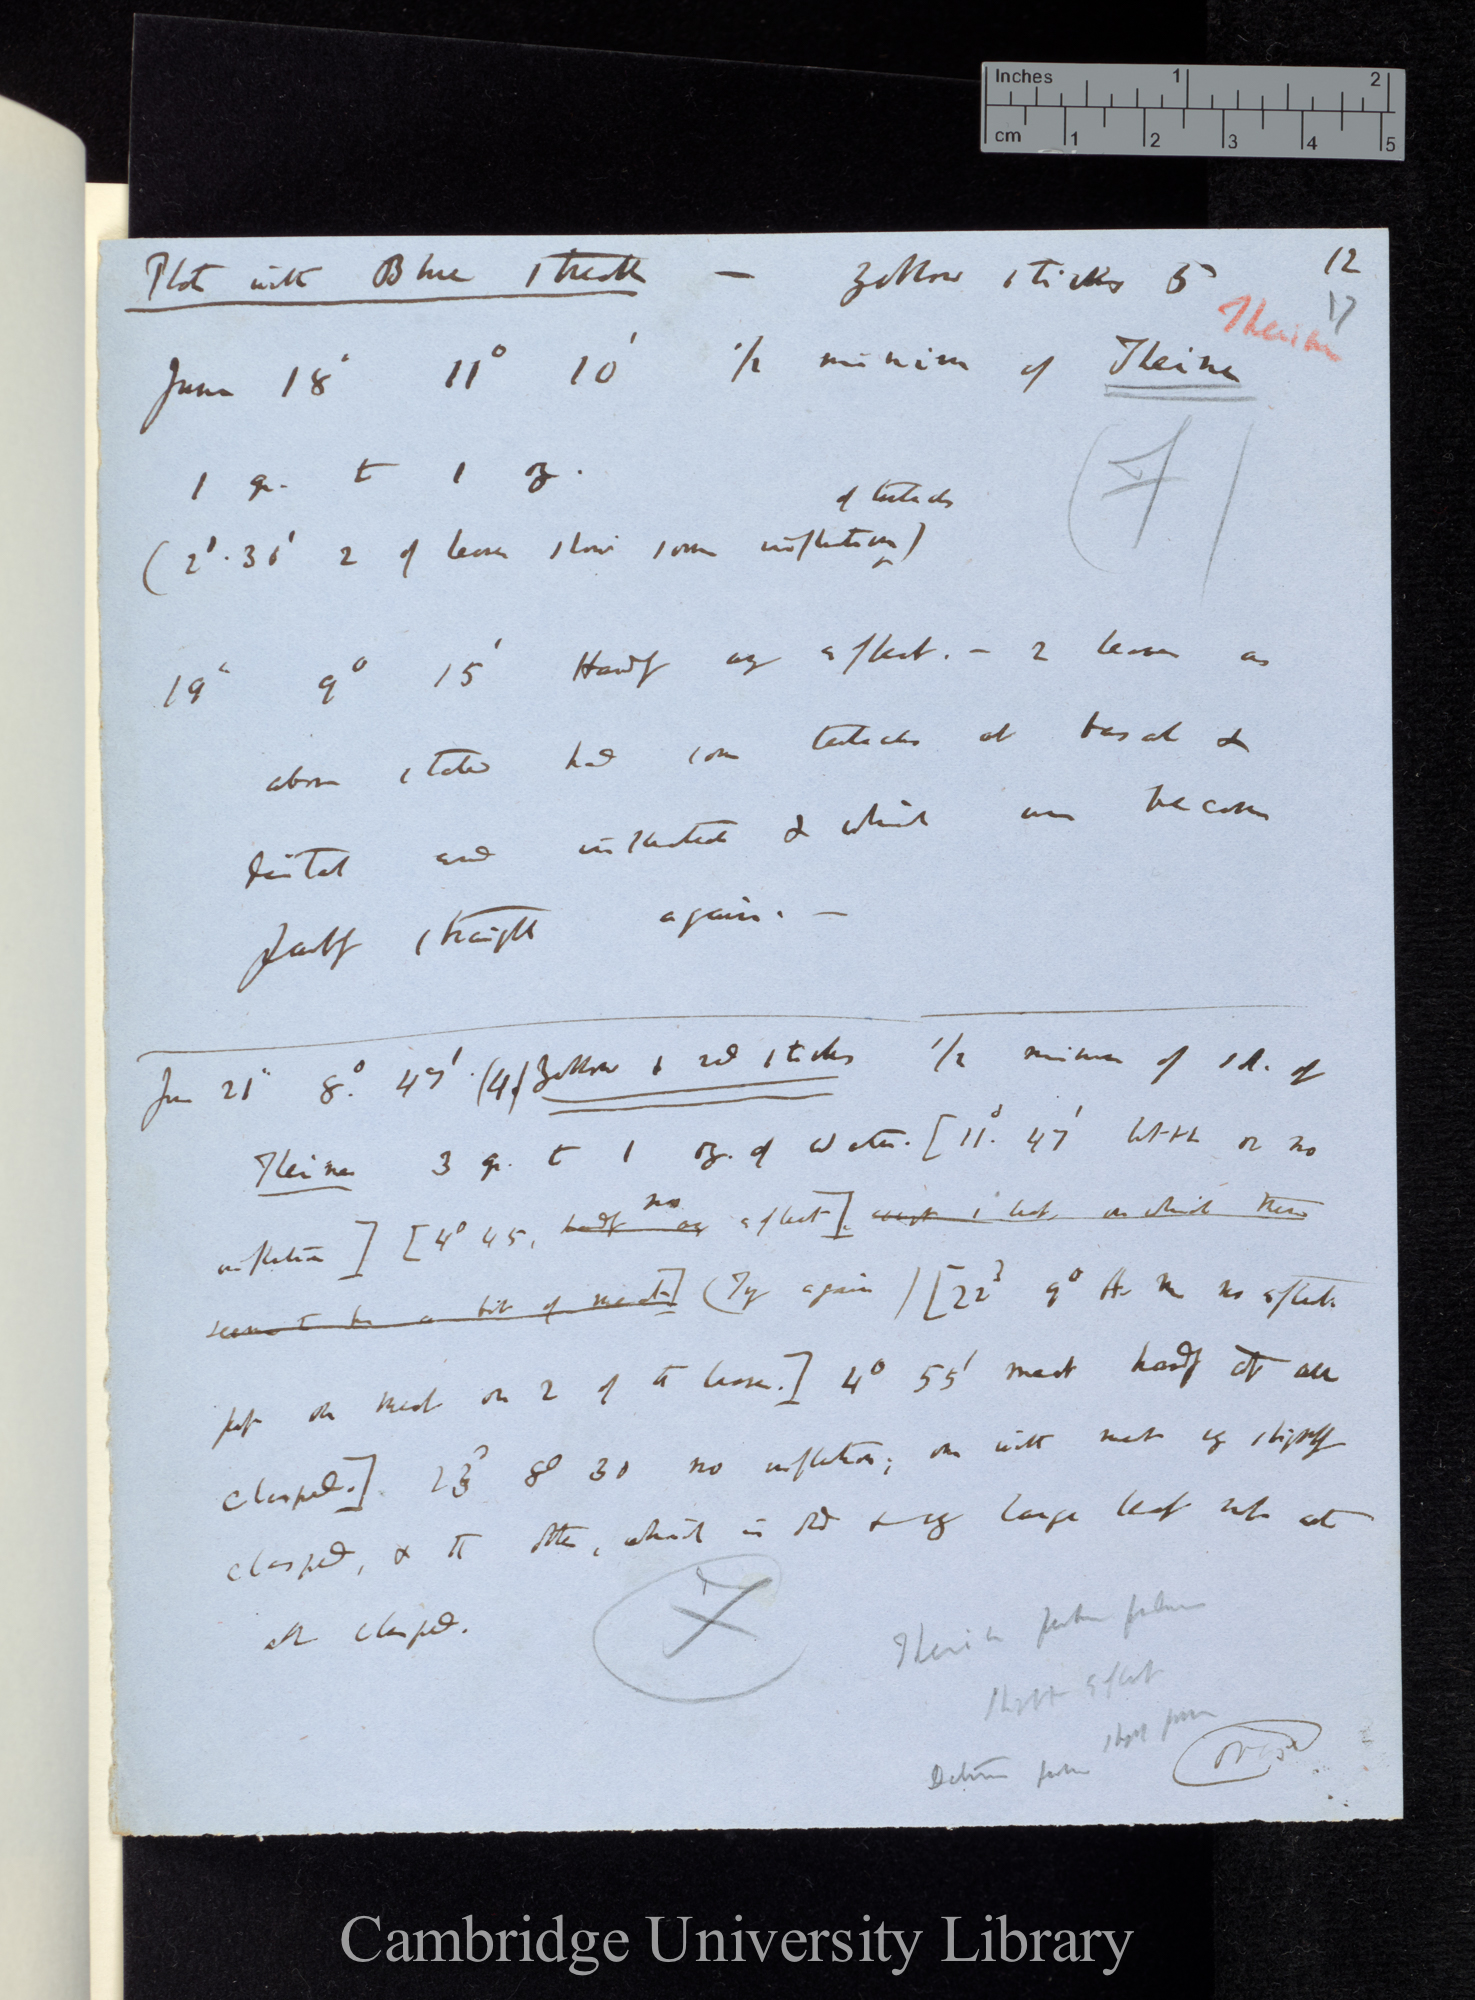 Inches 1 2
cm 1 2 3 4 5
Plate with Blue streak — Yellow sticks 5 12
17
Theine
June 18' 11° 10' 1/2 minim of Theine
1 gr. to 1 oz.
of tentacles
(2°. 30' 2 of leaves show some inflection)
19th 9° 15' Hardly any effect. — 2 leaves as
above stated had some tentacles at base &
distal end inflected & which are become
partly straight again. —
June 21st 8°. 47' (4) Yellow & red sticks 1/2 minim of sol. of
Theine 3 gr. to 1 oz. of water. [11°. 47' little or no
no
inflection] [4° 45, hardly any effect]. except 1 leaf, on which there
seems to be a bit of meat] (Try again) [22d 9° A. M. no effect.
put on meat on 2 of the leaves.] 4° 55' meat hardly at all
clasped.] 23d 8° 30 no inflection; one with meat very slightly
clasped, & the other, which is old & very large leaf not at
all clasped.
Theine
slight effect